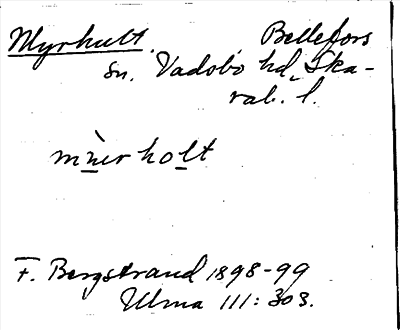 Myrhult. Bellefors
sn. Vadsbo hd, Ska-
rab. l.
F. Bergstrand 1898-99
Ulma 111: 303.